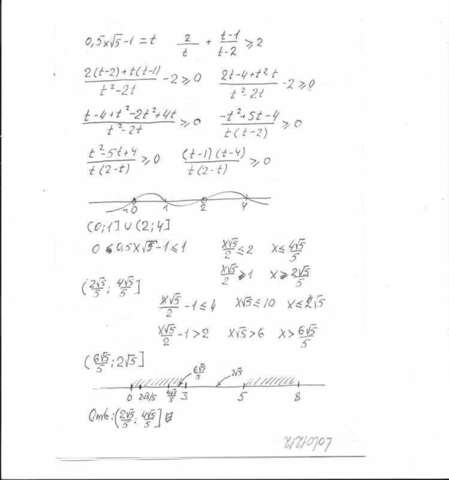 0,5x√5-1=t   2/t + (t-1)/(t-2) ⩾2
(2(t-2)+t(t-1))/(t²-2t) -2⩾0   (2t-4+t²-t)/(t²-2t) -2⩾0
(t-4+t²-2t²+4t)/(t²-2t) ⩾0   (-t²+5t-4)/(t(t-2)) ⩾0
(t²-5t+4)/(t(2-t)) ⩾0   ((t-1)(t-4))/(t(2-t)) ⩾0
0 1 2 4
(0;1]∪(2;4]
0<0,5x√5-1≤1   x√5/2 ≤2   x≤ 4√5/5
x√5/2 >1   x> 2√5/5
(2√5/5; 4√5/5]
x√5/2 -1≤4   x√5≤10   x≤2√5
x√5/2 -1>2   x√5>6   x> 6√5/5
(6√5/5; 2√5]
6√5/5   2√5
0 2√5/5 4√5/5 3 5 8
Ответ: (2√5/5; 4√5/5]